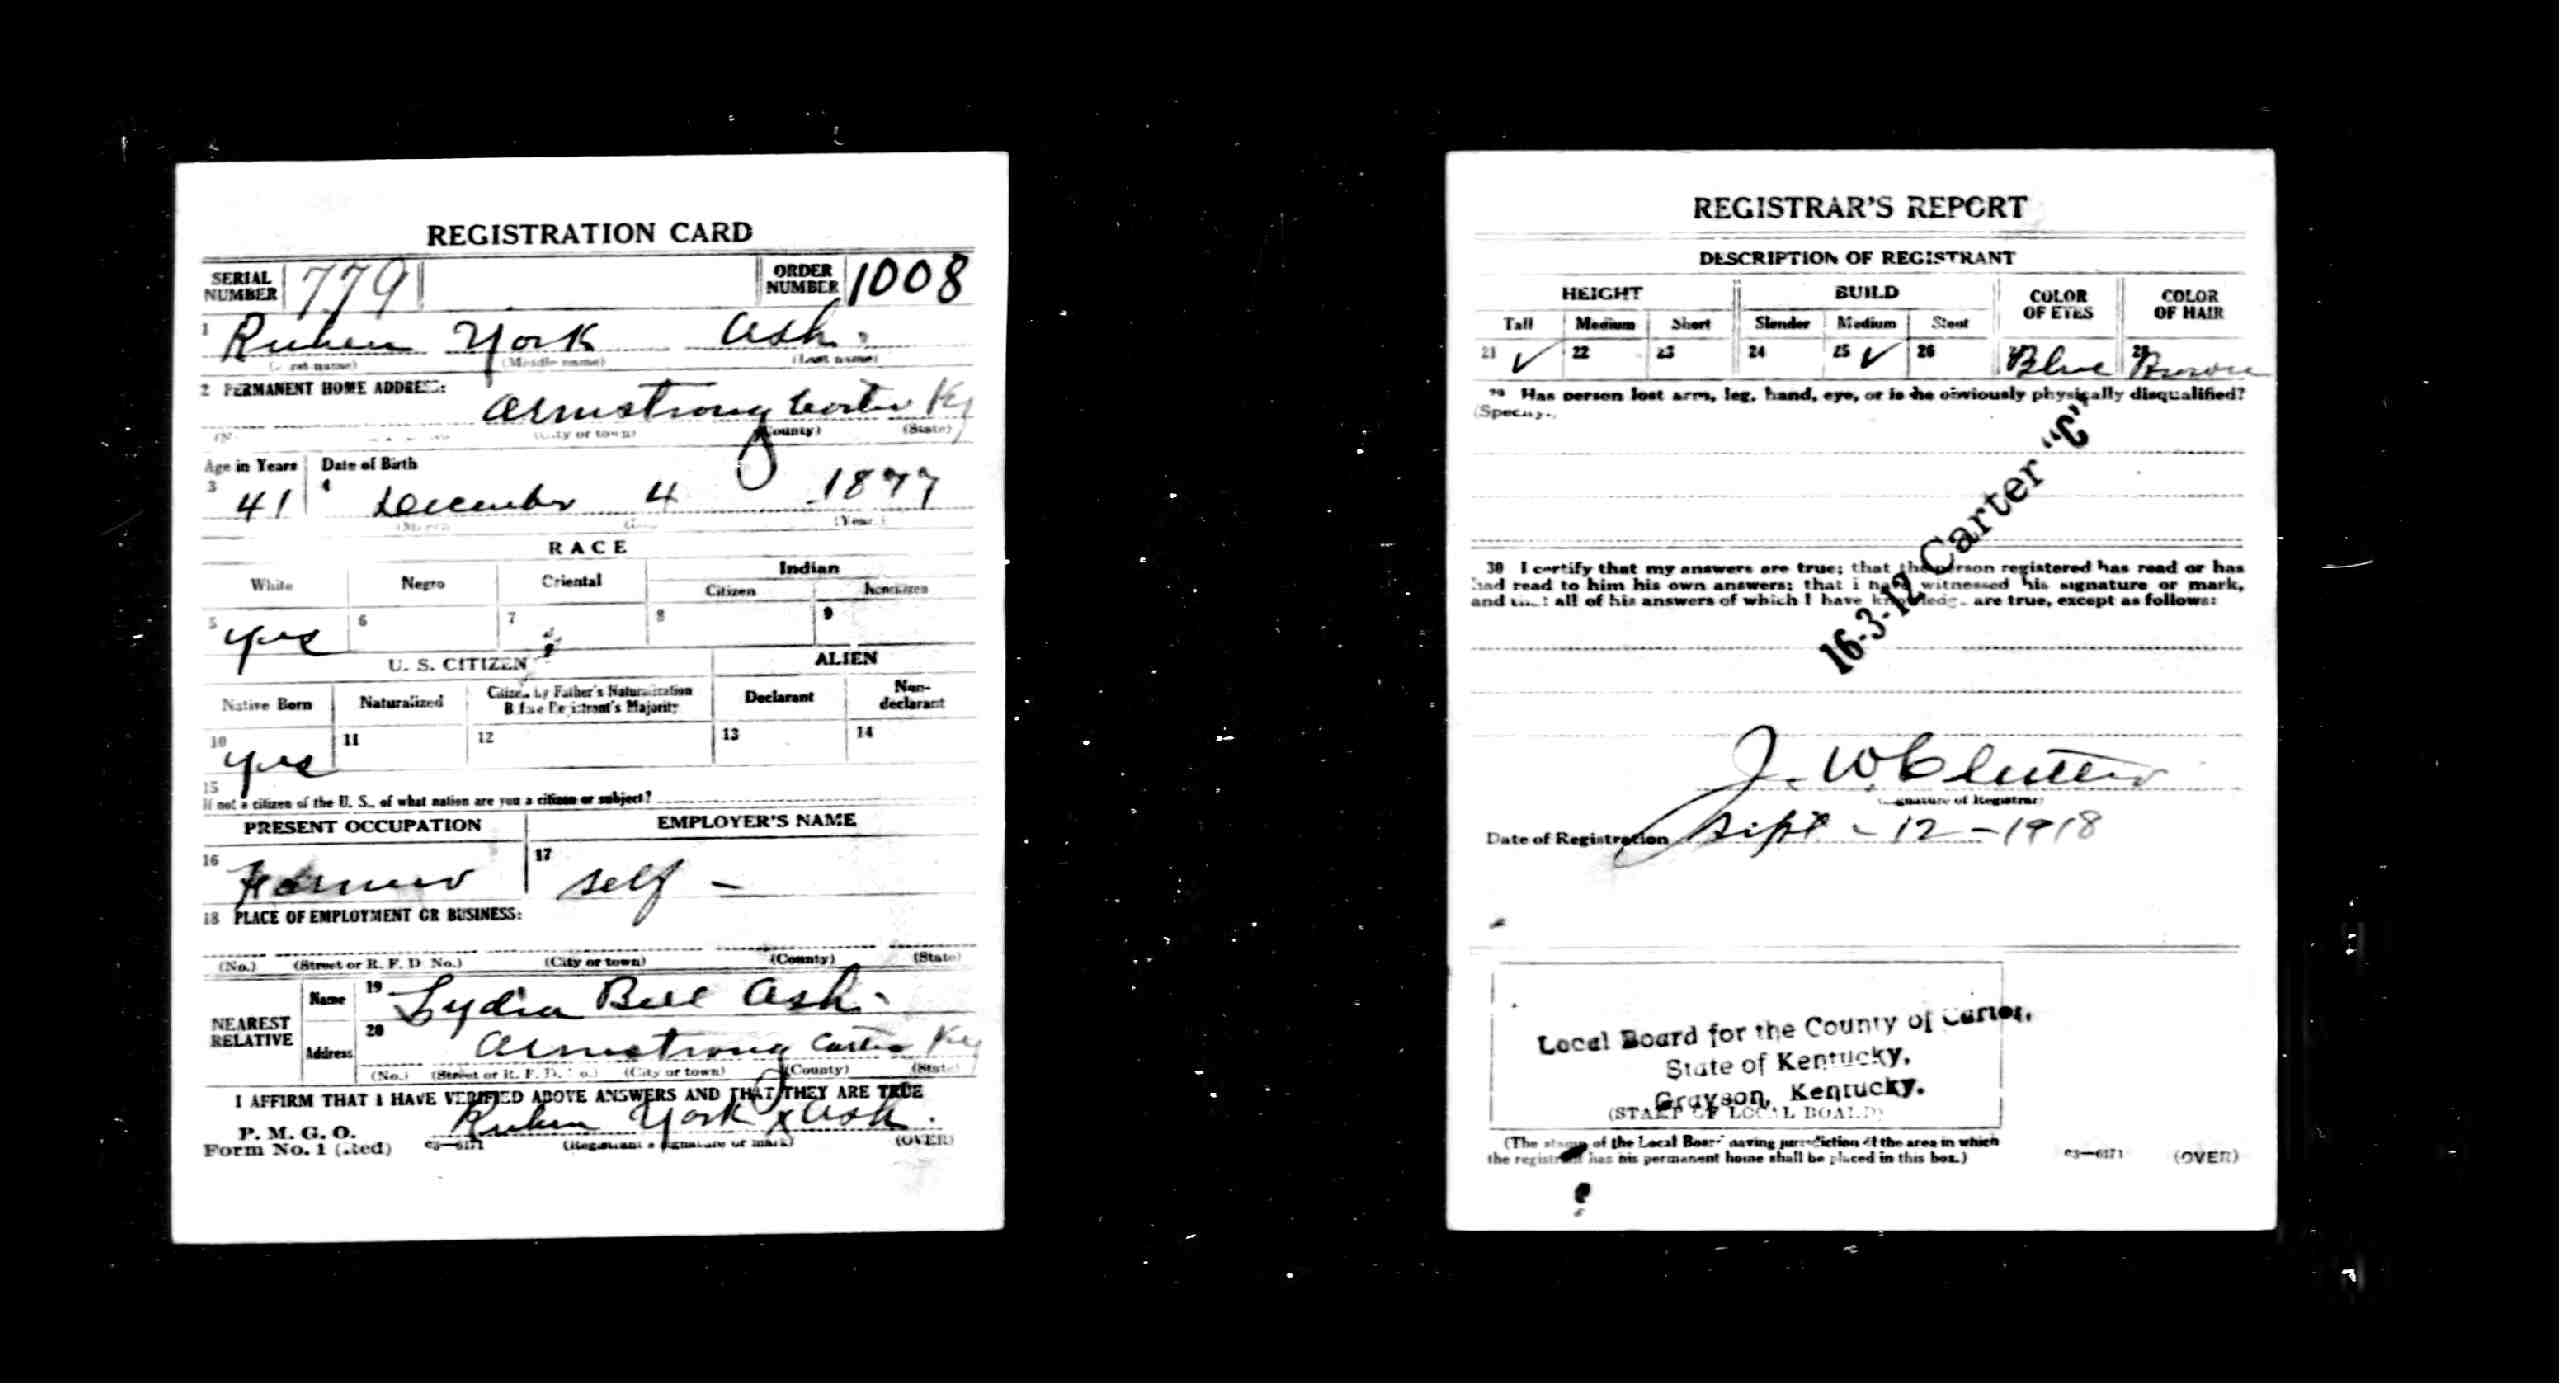 REGISTRATION CARD
SERIAL NUMBER 779 ORDER NUMBER 1008
1 Ruben York Ash.
(Middle name) (Last name)
2 PERMANENT HOME ADDRESS:
Armstrong Carter Ky
(City or town) (County) (State)
Age in Years Date of Birth
3 41 4 December 4 1877
(Year)
RACE
White Negro Oriental Indian
Citizen Noncitizen
5 yes 6 7 8 9
U. S. CITIZEN ALIEN
Native Born Naturalized Citizen by Father's Naturalization Before Registrant's Majority Declarant Non-declarant
10 yes 11 12 13 14
15
If not a citizen of the U. S., of what nation are you a citizen or subject?
PRESENT OCCUPATION EMPLOYER'S NAME
16 Farmer 17 self -
18 PLACE OF EMPLOYMENT OR BUSINESS:
(No.) (Street or R. F. D. No.) (City or town) (County) (State)
NEAREST RELATIVE Name 19 Lydia Bell Ash.
Address 20 Armstrong Carter Ky
(No.) (Street or R. F. D. No.) (City or town) (County) (State)
I AFFIRM THAT I HAVE VERIFIED ABOVE ANSWERS AND THAT THEY ARE TRUE
P. M. G. O. Ruben York x Ash.
Form No. 1 (Red) 03—6171 (Registrant's signature or mark) (OVER)
REGISTRAR'S REPORT
DESCRIPTION OF REGISTRANT
HEIGHT BUILD COLOR OF EYES COLOR OF HAIR
Tall Medium Short Slender Medium Stout
21 ✓ 22 23 24 25 ✓ 26 Blue 28 Brown
29 Has person lost arm, leg, hand, eye, or is he obviously physically disqualified?
(Specify.)
16-3-12 Carter "C"
30 I certify that my answers are true; that the person registered has read or has
had read to him his own answers; that I have witnessed his signature or mark,
and that all of his answers of which I have knowledge are true, except as follows:
J. W.
(Signature of Registrar)
Date of Registration Sept - 12 - 1918
Local Board for the County of Carter,
State of Kentucky,
Grayson, Kentucky.
(STAMP OF LOCAL BOARD)
(The stamp of the Local Board having jurisdiction of the area in which
the registrant has his permanent home shall be placed in this box.)
03—6171 (OVER)